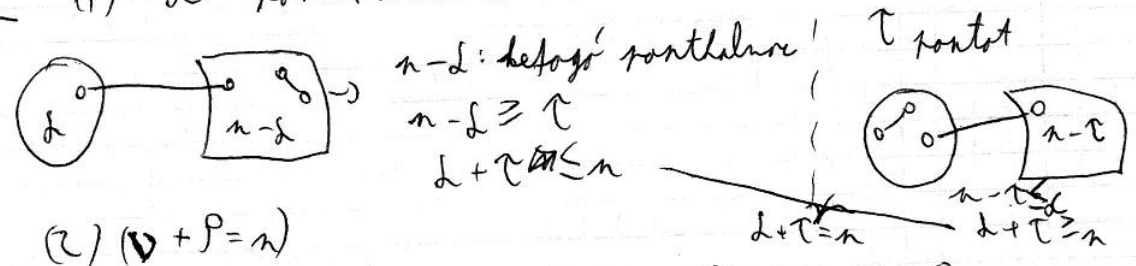 α
n-α
n-α: lefogó ponthalmaz
n-α ≥ τ
α+τ ≤ n
τ pontot
n-τ
n-τ ≤ α
α+τ ≥ n
α+τ = n
(2) (ν + ρ = n)